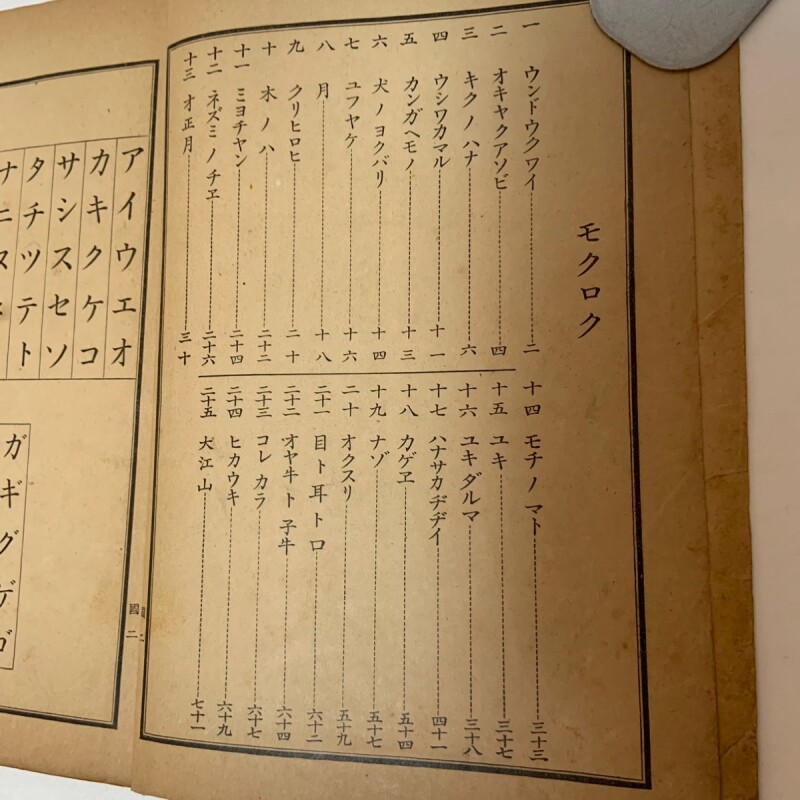 モクロク
一 ウンドウクワイ 二
二 オキヤクアソビ 四
三 キクノハナ 六
四 ウシワカマル 十一
五 カンガヘモノ 十三
六 犬ノヨクバリ 十四
七 ユフヤケ 十六
八 月 十八
九 クリヒロヒ 二十
十 木ノハ 二十二
十一 ミヨチヤン 二十四
十二 ネズミノチヱ 二十六
十三 オ正月 三十
十四 モチノマト 三十三
十五 ユキ 三十七
十六 ユキダルマ 三十八
十七 ハナサカヂヂイ 四十一
十八 カゲヱ 五十四
十九 ナゾ 五十七
二十 オクスリ 五十九
二十一 目ト耳ト口 六十二
二十二 オヤ牛ト子牛 六十四
二十三 コレカラ 六十七
二十四 ヒカウキ 六十九
二十五 大江山 七十一
アイウエオ
カキクケコ
サシスセソ
タチツテト
ナニヌ
ガギグゲゴ
國二